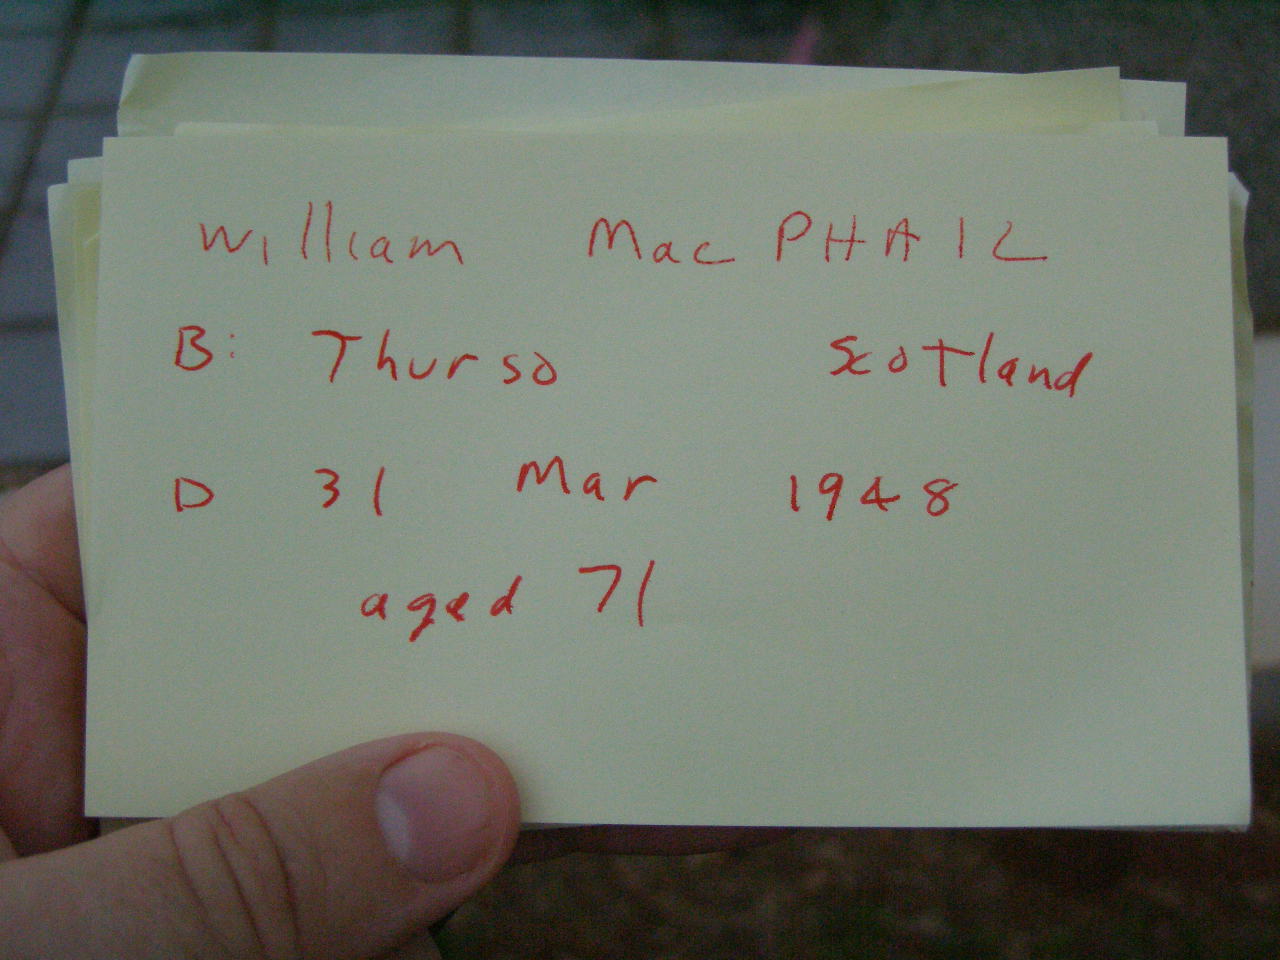 William MacPHAIL
B: Thurso Scotland
D 31 Mar 1948
aged 71